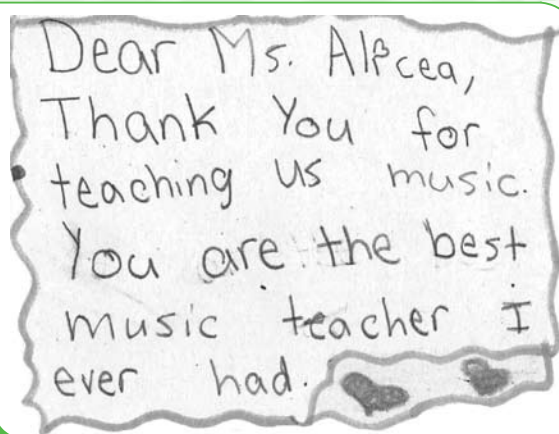 Dear Ms. Alicea,
Thank You for
teaching us music.
You are the best
music teacher I
ever had.